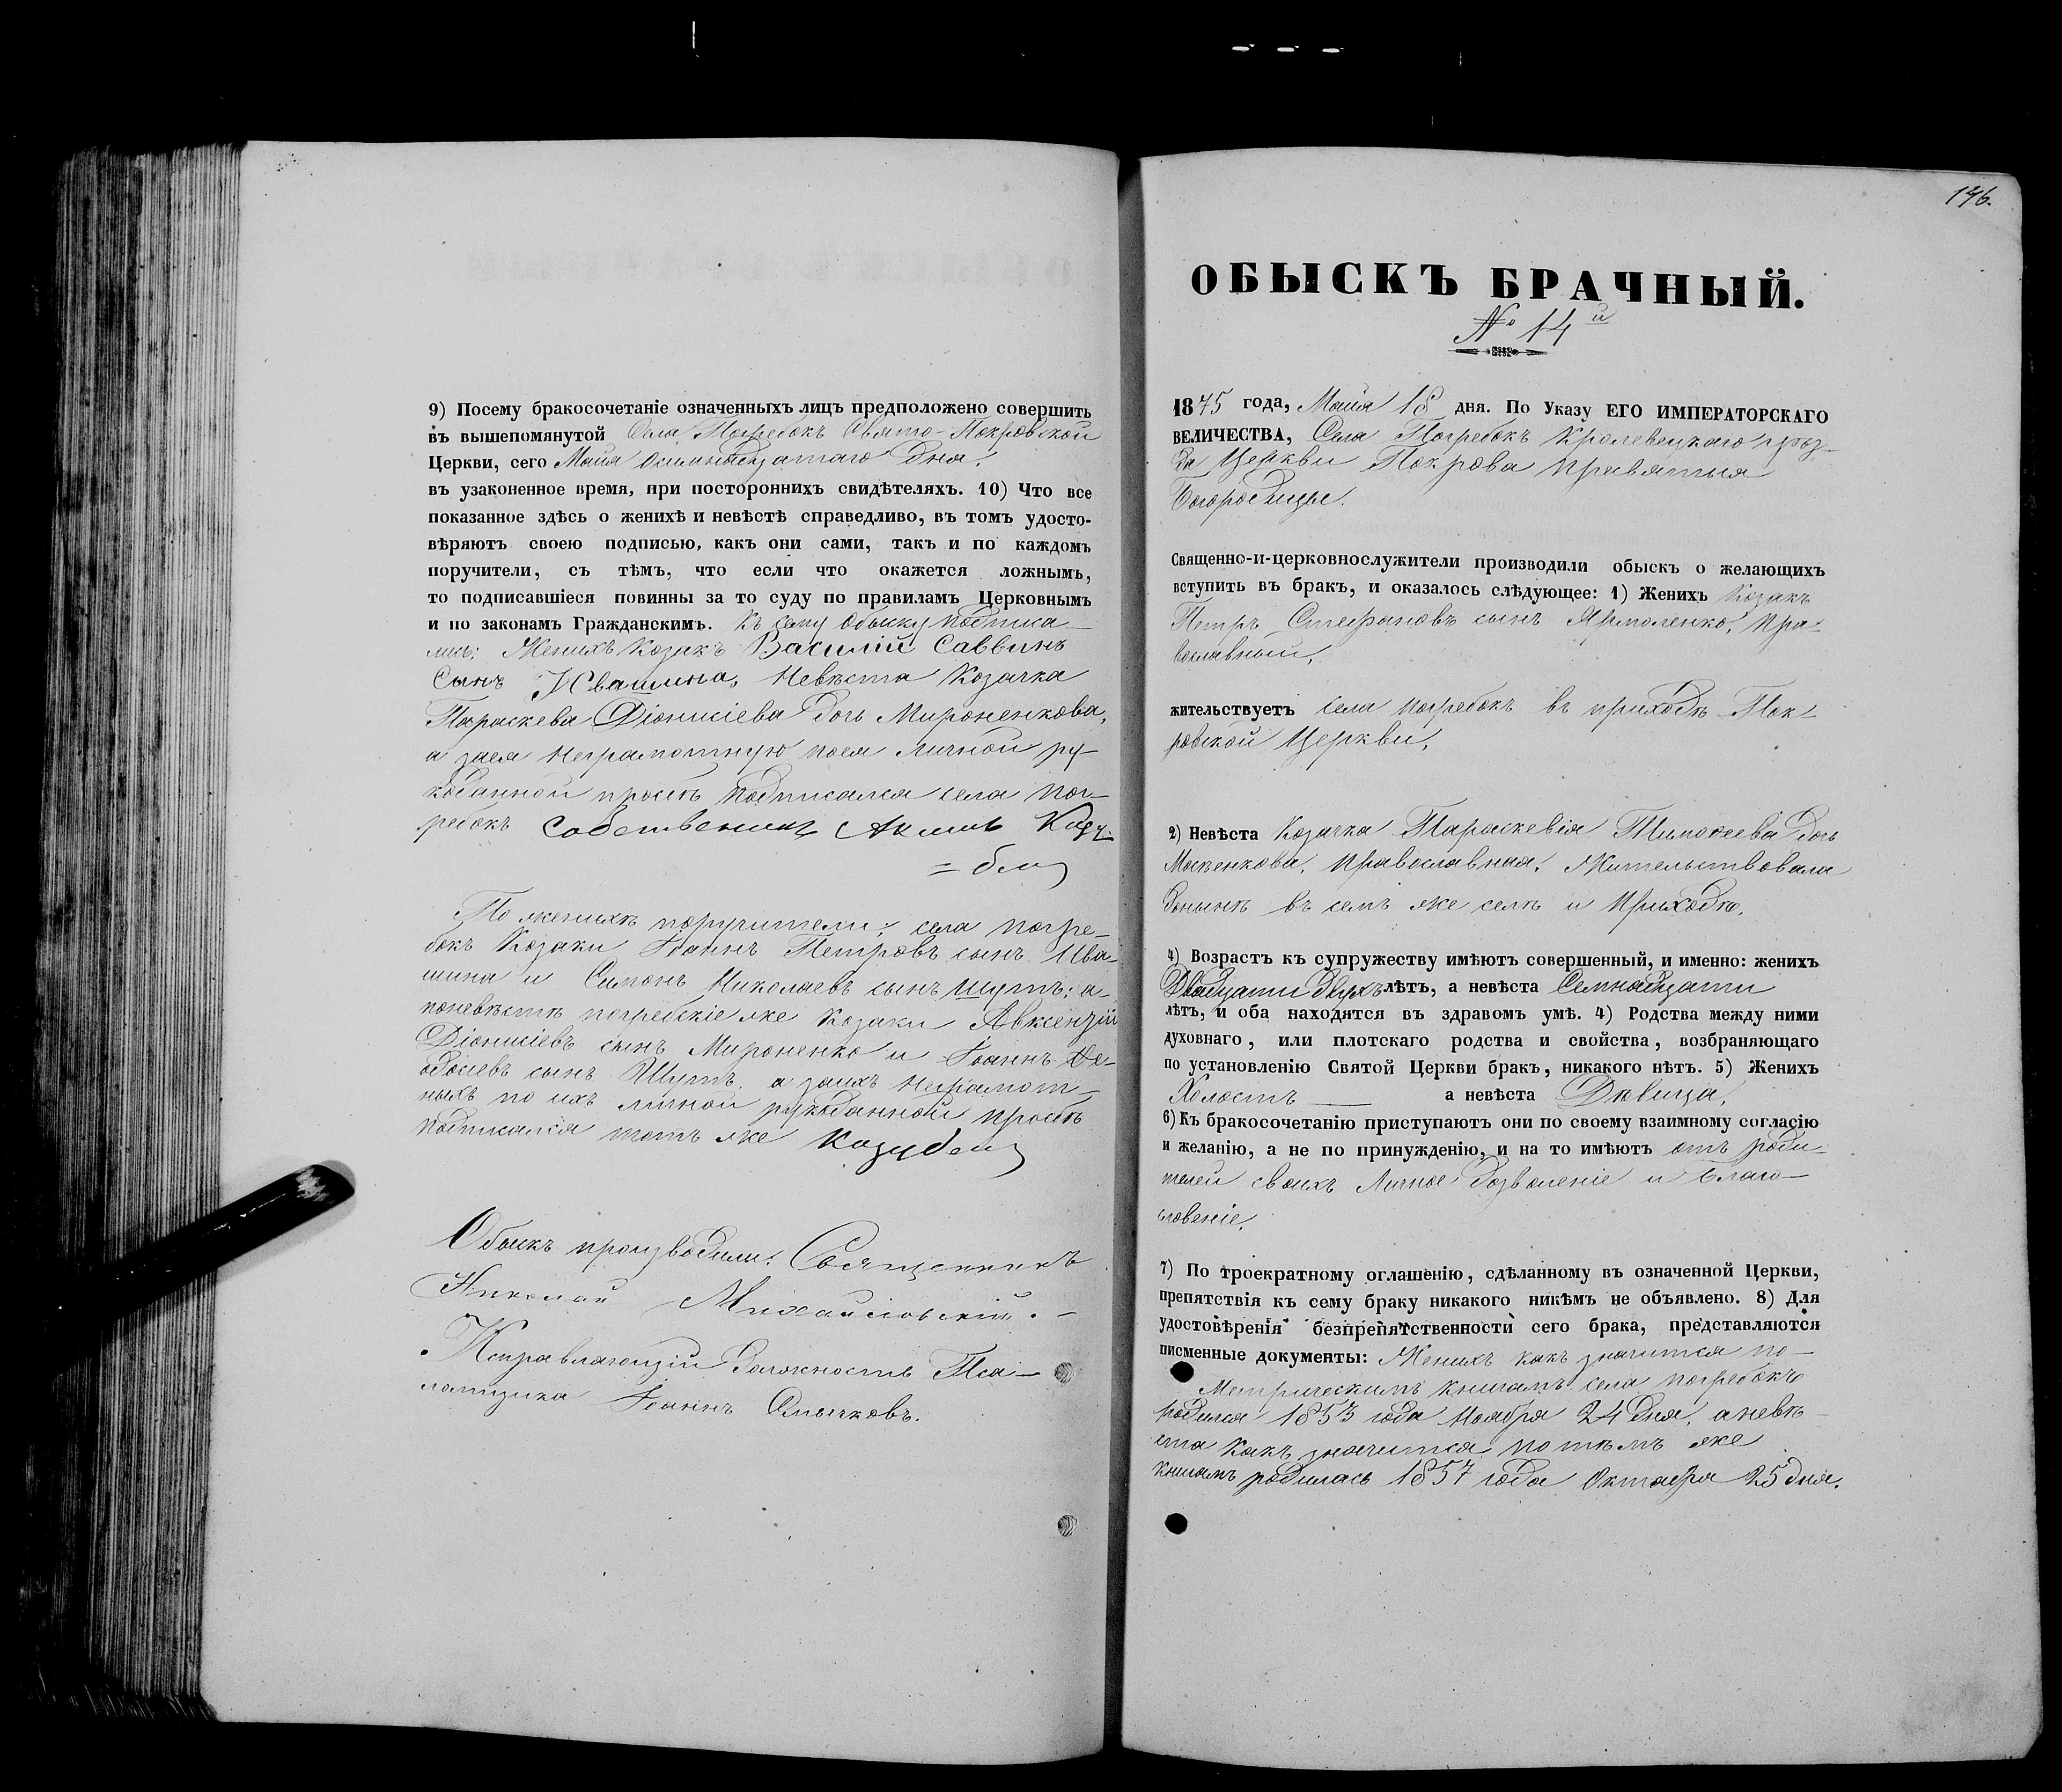 9) Посему бракосочетаніе означенныхъ лицъ предположено совершить
въ вышепомянутой Села Погребокъ Свято-Покровской
Церкви, сего Майя осимнадцатаго дня.
въ узаконенное время, при постороннихъ свидѣтеляхъ. 10) Что все
показанное здѣсь о женихѣ и невѣстѣ справедливо, въ томъ удосто-
вѣряютъ своею подписью, какъ они сами, такъ и по каждомъ
поручители, съ тѣмъ, что если что окажется ложнымъ,
то подписавшіеся повинны за то суду по правиламъ Церковнымъ
и по законамъ Гражданскимъ. Къ сему обыску подписа-
лись: Женихъ Козакъ Василій Саввинъ
Сынъ Ивашина, Невѣста Козачка
Параскева Діонисіева дочь Мироненкова,
а заея неграмотную поея личной ру-
коданной прозбѣ подписался села пог-
ребокъ собственникъ Акимъ Козу-
=бец
По женихѣ поручители: села погре-
бокъ Козаки Іоаннъ Петровъ сынъ Ива-
шина и Симонъ Николаевъ сынъ Шутъ: а-
поневѣстѣ погребскіе же Козаки Авксентій
Діонисіевъ сынъ Мироненко и Іоаннъ Ѳе-
одосіевъ сынъ Шутъ, а заихъ неграмот-
ныхъ по ихъ личной рукоданной прозбѣ
подписался тотъ же Козубец
Обыскъ производили: Священникъ
Николай Михайловскій.-
Исправляющій Должность Пса-
ломщика Іоаннъ Смычковъ.
196.
ОБЫСКЪ БРАЧНЫЙ.
№ 14й
1875 года, Майя 18 дня. По Указу ЕГО ИМПЕРАТОРСКАГО
ВЕЛИЧЕСТВА, Села Погребокъ Кролевецкаго уѣз-
да Церкви Покрова Пресвятыя
Богородицы.
Священно-и-церковнослужители производили обыскъ о желающихъ
вступить въ бракъ, и оказалось слѣдующее: 1) Женихъ Козакъ
Петръ Стефановъ сынъ Ярмоленко, Пра-
вославный,
жительствуетъ села погребокъ въ приходѣ Пок-
ровской Церкви,
2) Невѣста Козачка Параскевія Тимоѳеева дочь
Мосќенкова, православная, Жительствовала
донынѣ въ семъ же селѣ и Приходѣ.
4) Возрастъ къ супружеству имѣютъ совершенный, и именно: женихъ
Двадцати двухъ лѣтъ, а невѣста Семнадцати
лѣтъ, и оба находятся въ здравомъ умѣ. 4) Родства между ними
духовнаго, или плотскаго родства и свойства, возбраняющаго
по установленію Святой Церкви бракъ, никакого нѣтъ. 5) Женихъ
Холостъ — а невѣста Дѣвица,
6) Къ бракосочетанію приступаютъ они по своему взаимному согласію
и желанію, а не по принужденію, и на то имѣютъ отъ роди-
телей своихъ Личное дозволеніе и Благо-
словеніе.
7) По троекратному оглашенію, сдѣланному въ означенной Церкви,
препятствія къ сему браку никакого никѣмъ не объявлено. 8) Для
удостовѣренія безпрепятственности сего брака, представляются
писменные документы: Женихъ какъ значится по-
Метрическимъ книгамъ села погребокъ
родился 1853 года Ноября 24 дня, а невѣ-
ста Какъ значится по тѣмъ же
книгамъ родилась 1857 года Октября 25 дня.